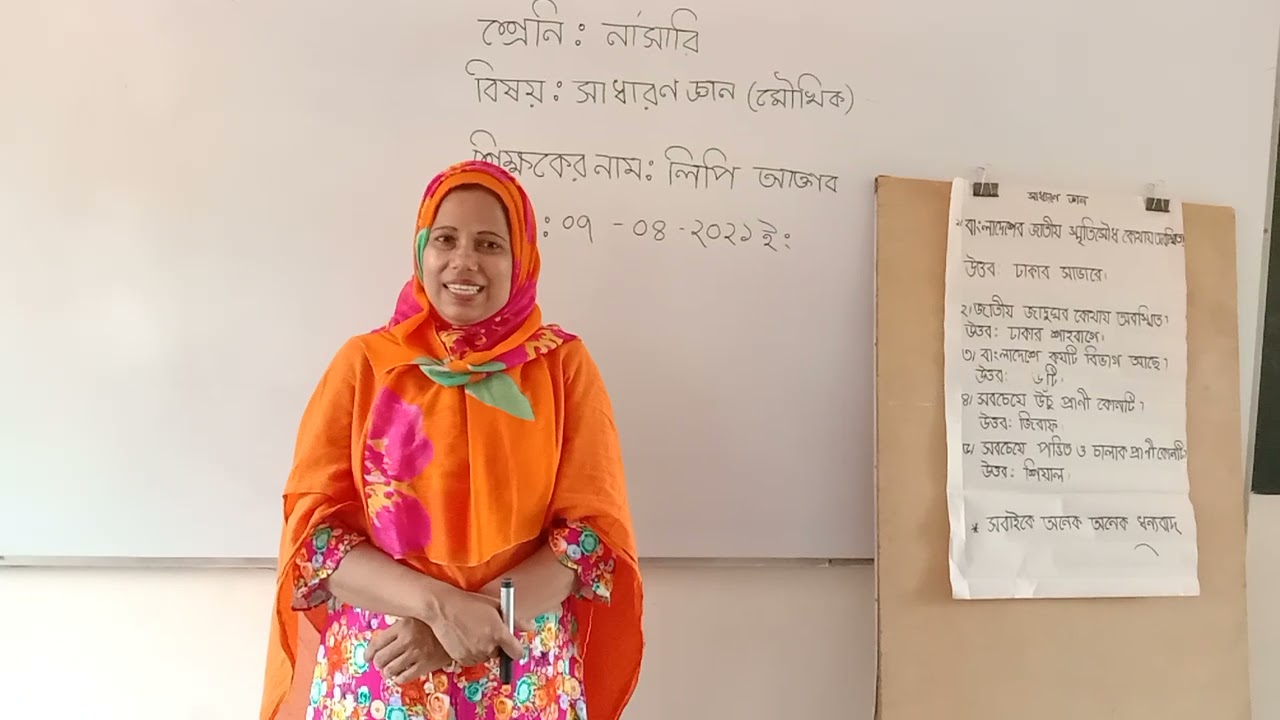 শ্রেনি : নার্সারি
বিষয় : সাধারণ জ্ঞান (মৌখিক)
শিক্ষকের নাম : লিপি আক্তার
: ০৭ - ০৪ - ২০২১ ইং
সাধারণ জ্ঞান
১/ বাংলাদেশের জাতীয় স্মৃতিসৌধ কোথায় অবস্থিত
উত্তর: ঢাকার সাভারে।
২/ জাতীয় জাদুঘর কোথায় অবস্থিত?
উত্তর: ঢাকার শাহবাগে।
৩/ বাংলাদেশে কয়টি বিভাগ আছে?
উত্তর: ৮টি।
৪/ সবচেয়ে উঁচু প্রাণী কোনটি?
উত্তর: জিরাফ
৫/ সবচেয়ে পন্ডিত ও চালাক প্রাণী কোনটি
উত্তর: শিয়াল।
* সবাইকে অনেক অনেক ধন্যবাদ